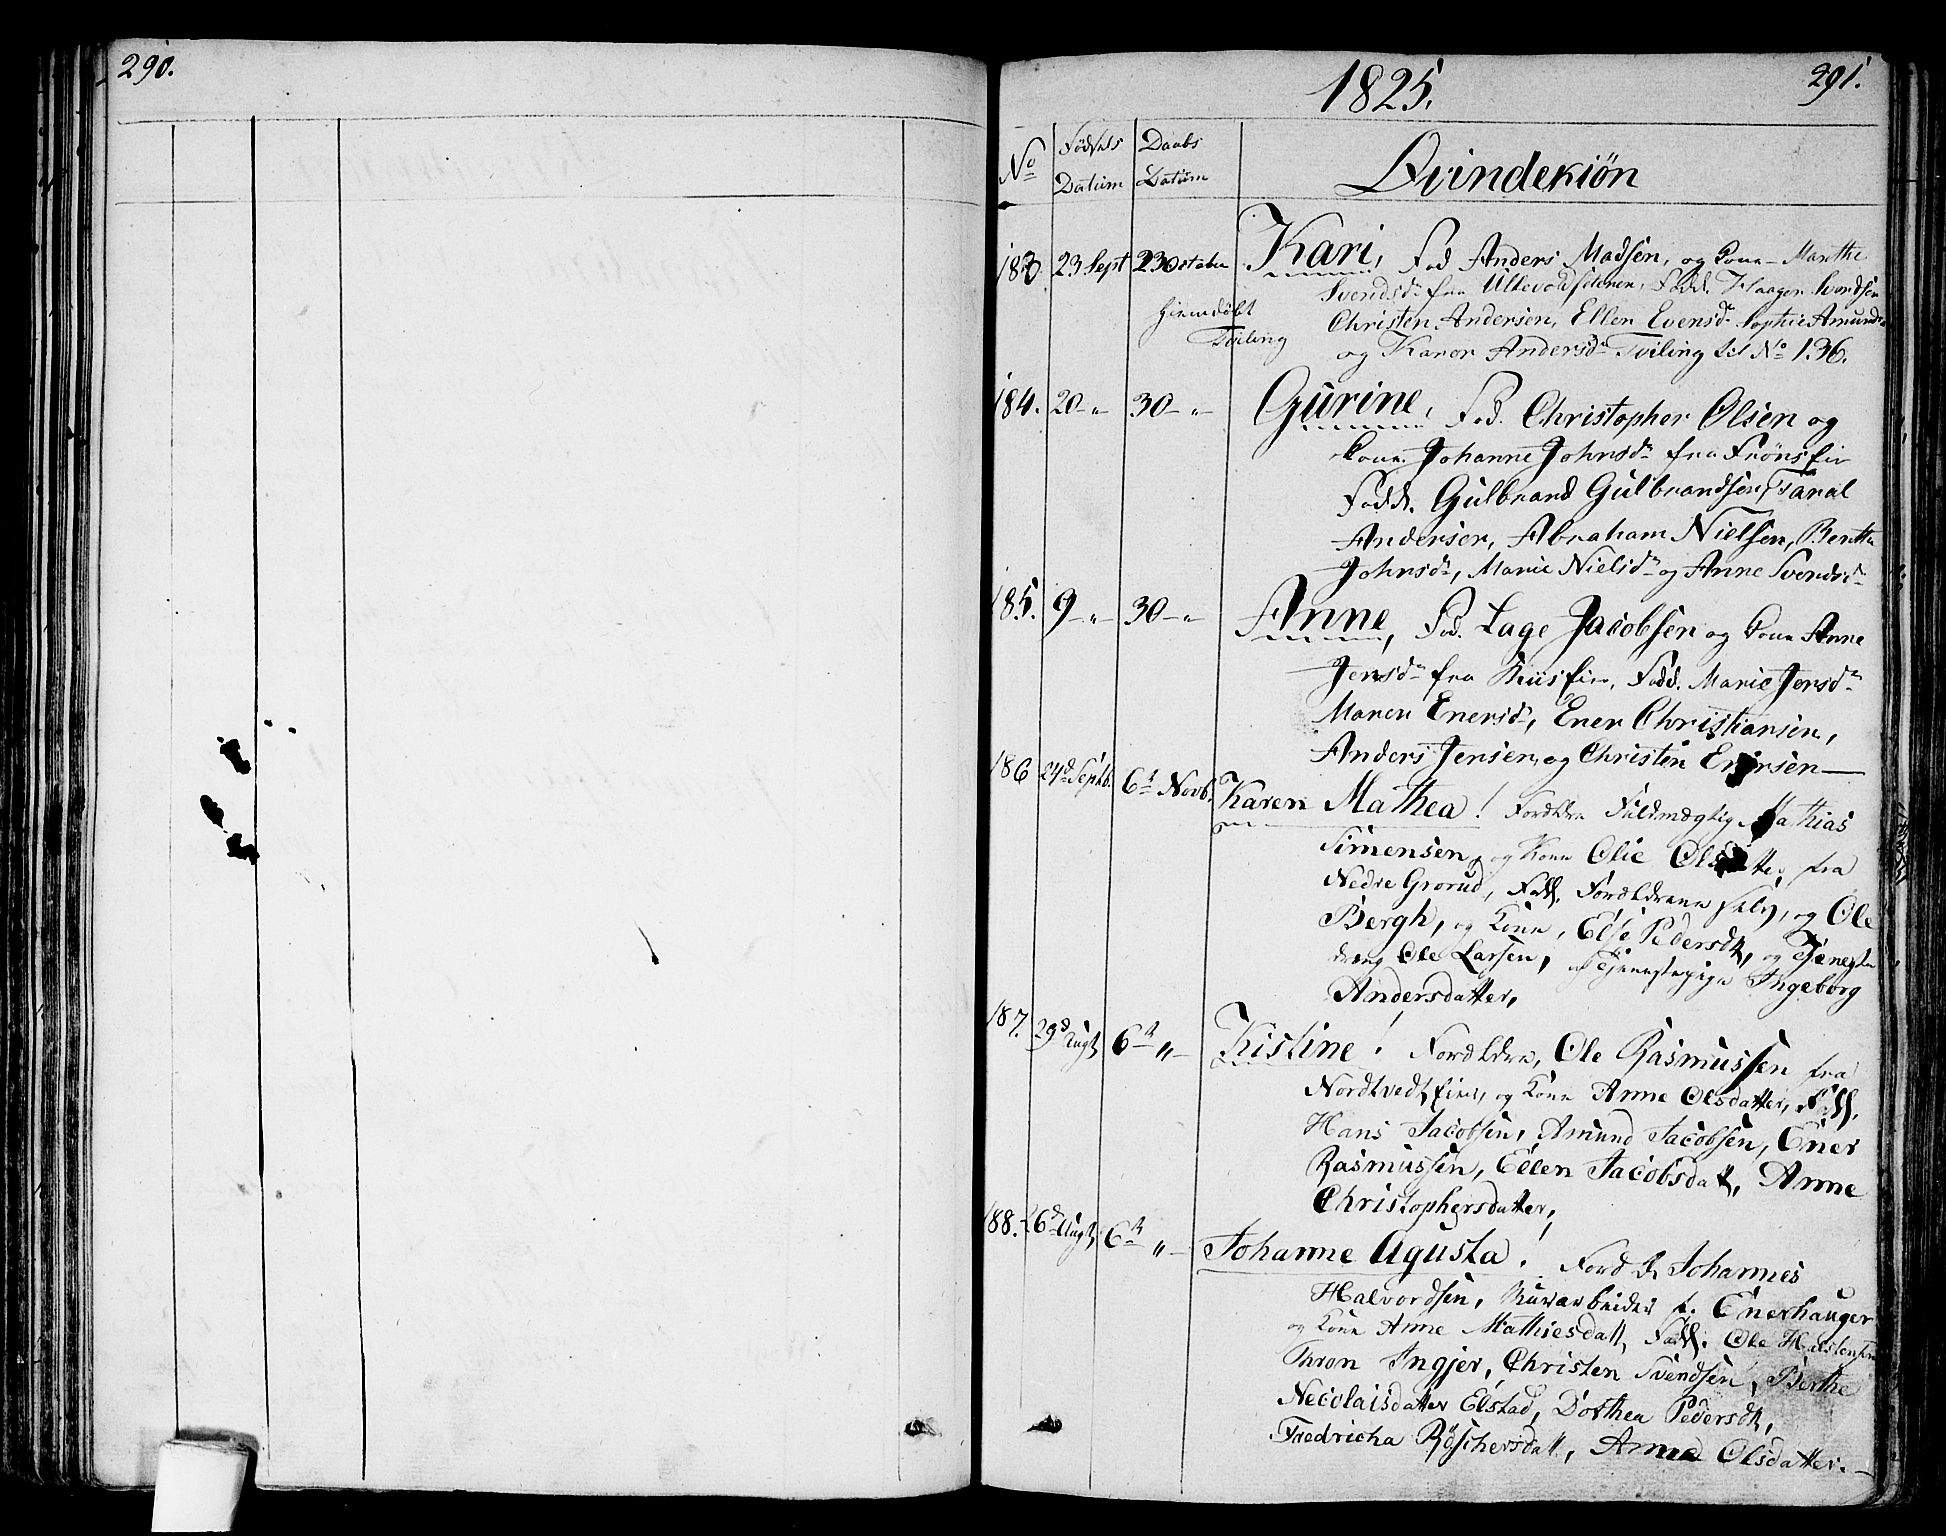 290.
1825.
291.
No
Fødsels Datum
Daabs Datum
Qvindekiön
183. 23 Sept 23 October Kari, Fod Anders Madsen, og Kone Marthe
Svendsd. fra Ullevoldseteren, Fadd. Haagen
hiemdöbt
Christen Andersen, Ellen Evensd. Sophie Amundsd
Tviling
og Karen Andersd. Tviling til No 136.
184. 20 - „ 30 - „ Gurine, Fod. Christopher Olsen og
Kone Johanne Johnsd. fra
Fadd. Gulbrand Gulbrandsen,
Andersen, Abraham Nielsen, Berthe
Johnsd., Marie Nielsd. og Anne Svendsd.
185. 9 - „ 30 - „ Anne, Fod. Lage Jacobsen og Kone Anne
Jensd. fra Fadd. Marie Jensd.
Maren Enersd., Ener Christiansen,
Anders Jensen, og Christen Enersen
186 24d Septb. 6t Novb. Karen Mathea! Forældre Fuldmægtig Mathias
Simensen, og Kone Olie Olsdatter, fra
Nedre Grorud, Fadd. Forældrene selv, og Ole
Bergh, og Kone, Else Pedersdt, og Tieneste
dreng Ole Larsen, og Tienestepige Ingeborg
Andersdatter,
187. 29d Augt 6t „ Kistine! Forældre, Ole Rasmussen fra
Nordtvedt, og Kone Anne Olsdatter, Fadd.
Hans Jacobsen, Amund Jacobsen, Ener
Rasmussen, Ellen Jacobsdatt, Anne
Christophersdatter,
188. 26d Augt 6t „ Johanne Agusta! Foræld Johannes
Halvordsen, Murarbeider f. Enerhaugen
og Kone Anne Mathiesdatt, Fadd. Ole Halstensen
Thron Ingjer, Christen Svendsen, Berthe
Necolaisdatter Elstad, Dorthea Pedersdt,
Fredricha Röschersdatt, Anne Olsdatter.